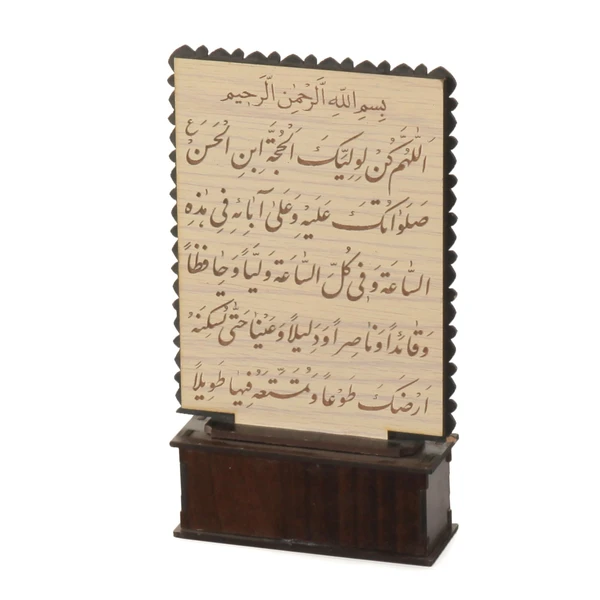 بِسْمِ اللّٰهِ الرَّحْمٰنِ الرَّحِیمِ
اَللّٰهُمَّ كُنْ لِوَلِیِّكَ الْحُجَّةِ ابْنِ الْحَسَنْ
صَلَوٰاتُكَ عَلَیْهِ وَعَلیٰ آبٰائِهِ فِی هٰذِهِ
السّٰاعَةِ وَفِی كُلِّ السّٰاعَة وَلِیّاً وَحٰافِظاً
وَقٰائِداً وَنٰاصِراً وَدَلِیلاً وَعَیْناً حَتّٰی تُسْكِنَهُ
اَرْضَكَ طَوْعاً وَتُمَتِّعَهُ فِیهٰا طَوِیلاً